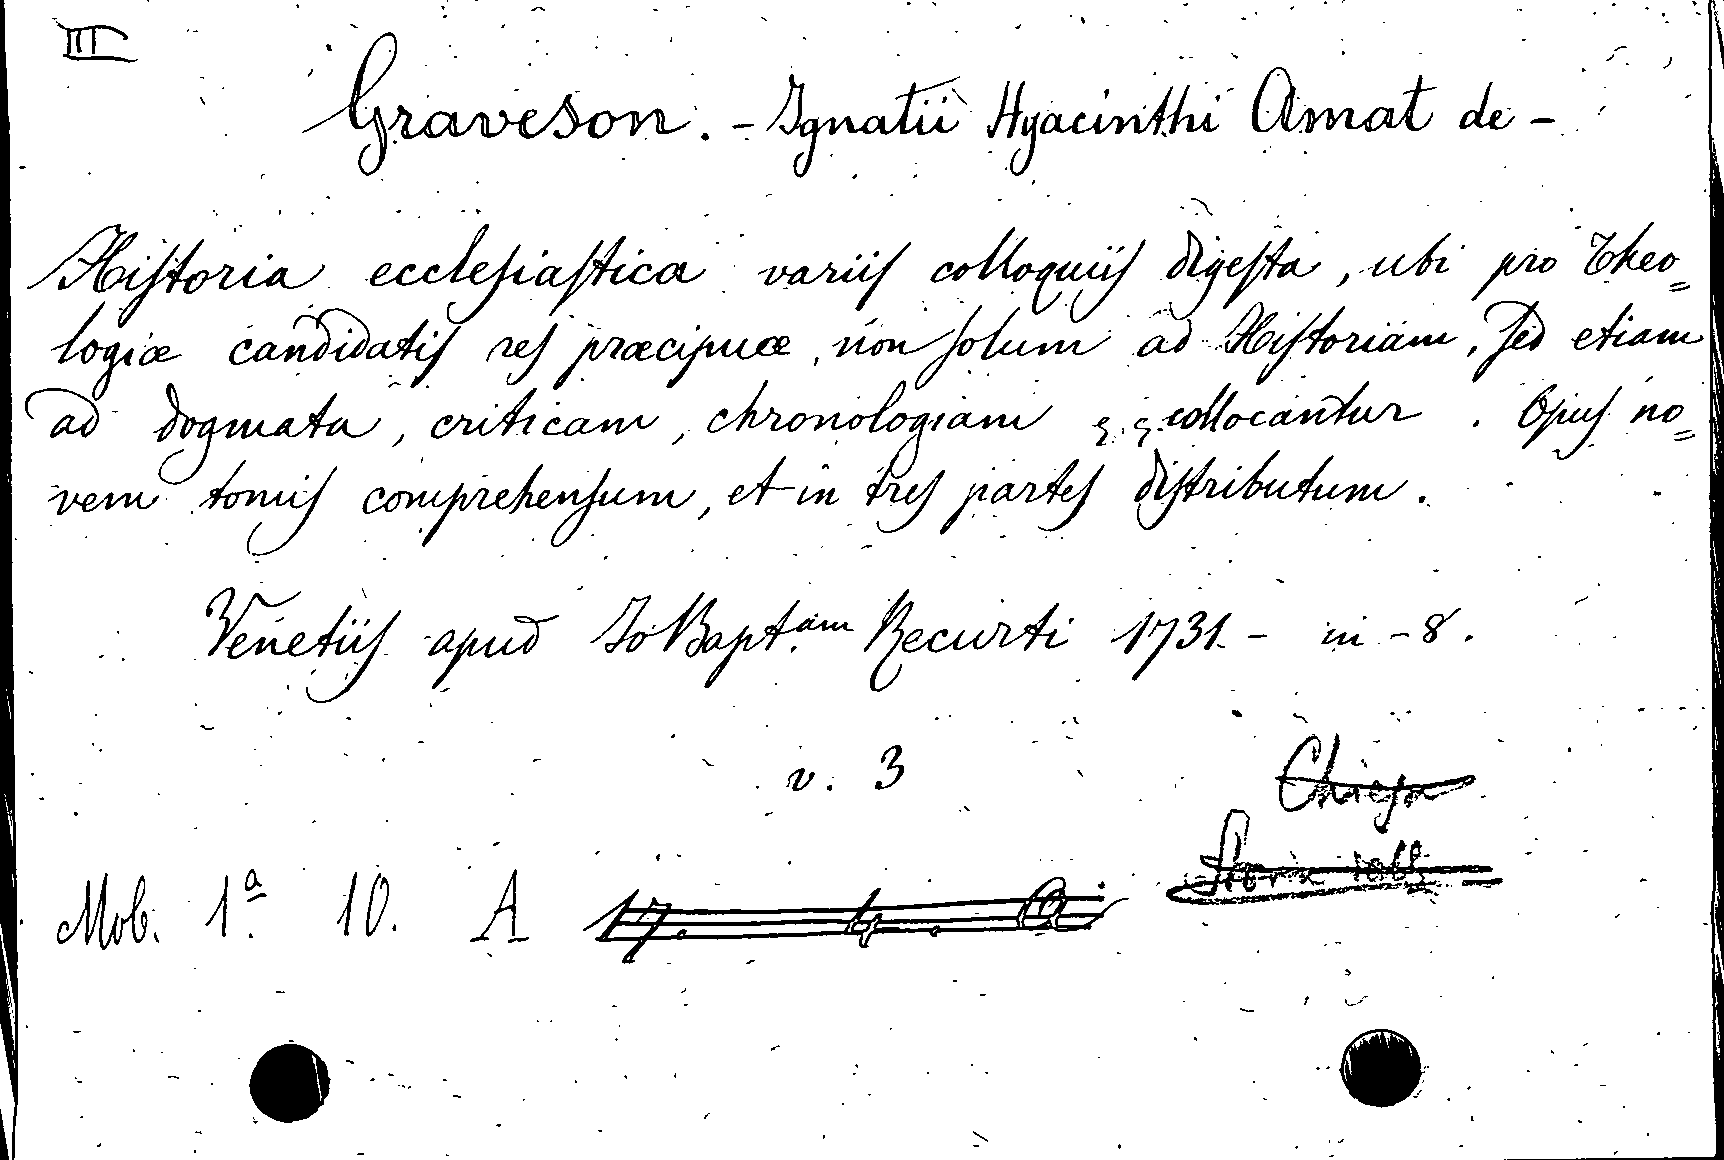 III
Graveson. - Ignatii Hyacinthi Amat de -
Historia ecclesiastica variis colloquiis digesta, ubi pro Theo=
logiæ candidatis res præcipuæ, non solum ad Historiam, sed etiam
ad dogmata, criticam, chronologiam collocantur. Opus no=
vem tomis comprehensum, et in tres partes distributum.
Venetiis apud Jo Bapt.am Recurti 1731. - in - 8.
v. 3
Chiesa
Storia
Mob. 1ª 10. A 17. 4. Q